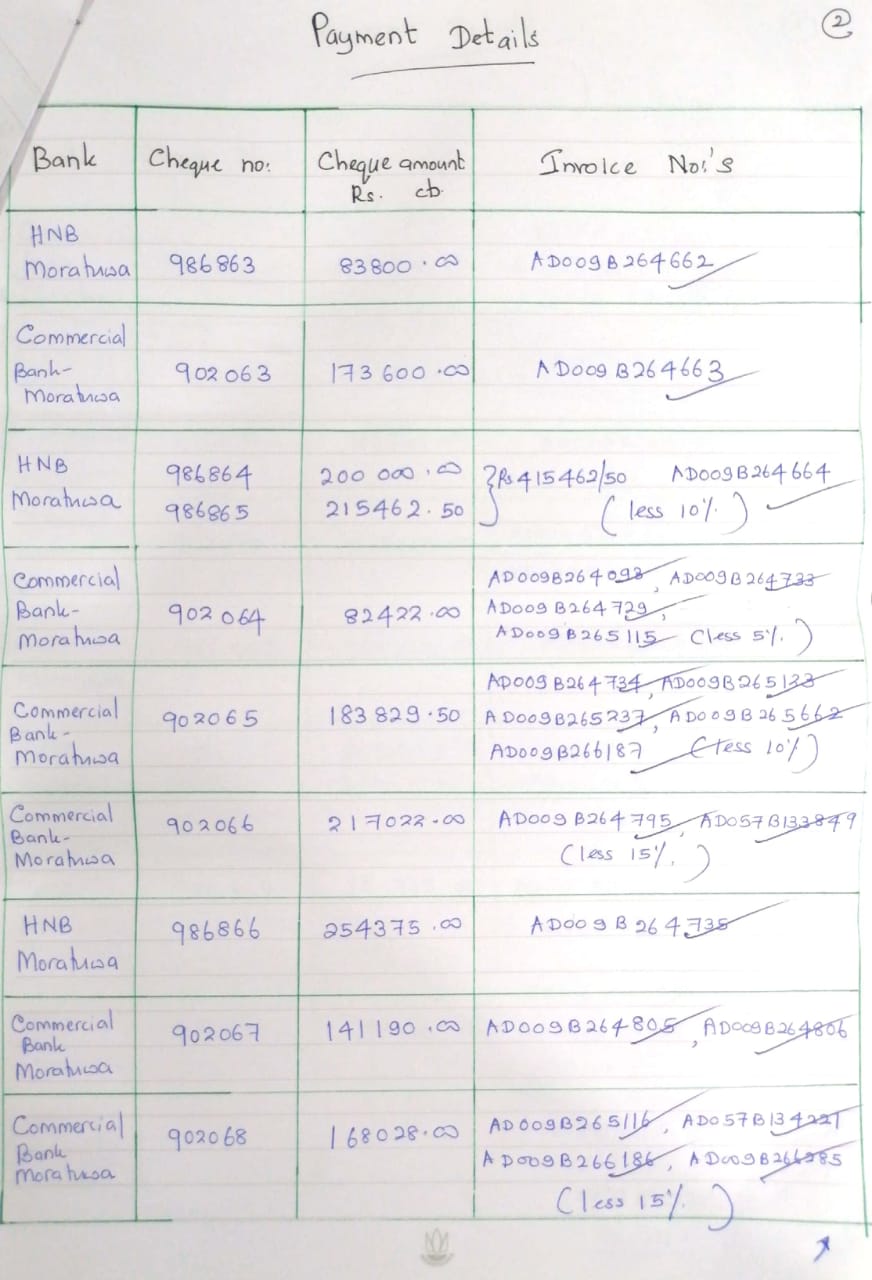 2
Payment Details
Bank Cheque no: Cheque amount Invoice No:'s
Rs. cts
HNB
Moratuwa 986863 83800.00 AD009B264662
Commercial
Bank- 902063 173600.00 AD009B264663
Moratuwa
HNB 986864 200 000.00 } Rs 415462/50 AD009B264664
Moratuwa 986865 215462.50 (less 10%)
Commercial AD009B264093, AD009B264733
Bank- 902064 82422.00 AD009B264729,
Moratuwa AD009B265115 (less 5%)
AD009B264734, AD009B265133
Commercial 902065 183829.50 AD009B265237, AD009B265662
Bank-
Moratuwa AD009B266187 (less 10%)
Commercial 902066 217022.00 AD009B264795, AD057B133849
Bank-
Moratuwa (less 15%)
HNB 986866 254375.00 AD009B264735
Moratuwa
Commercial 902067 141190.00 AD009B264805, AD009B264806
Bank
Moratuwa
Commercial 902068 168028.00 AD009B265116, AD057B134221
Bank AD009B266186, AD009B266285
Moratuwa
(less 15%)